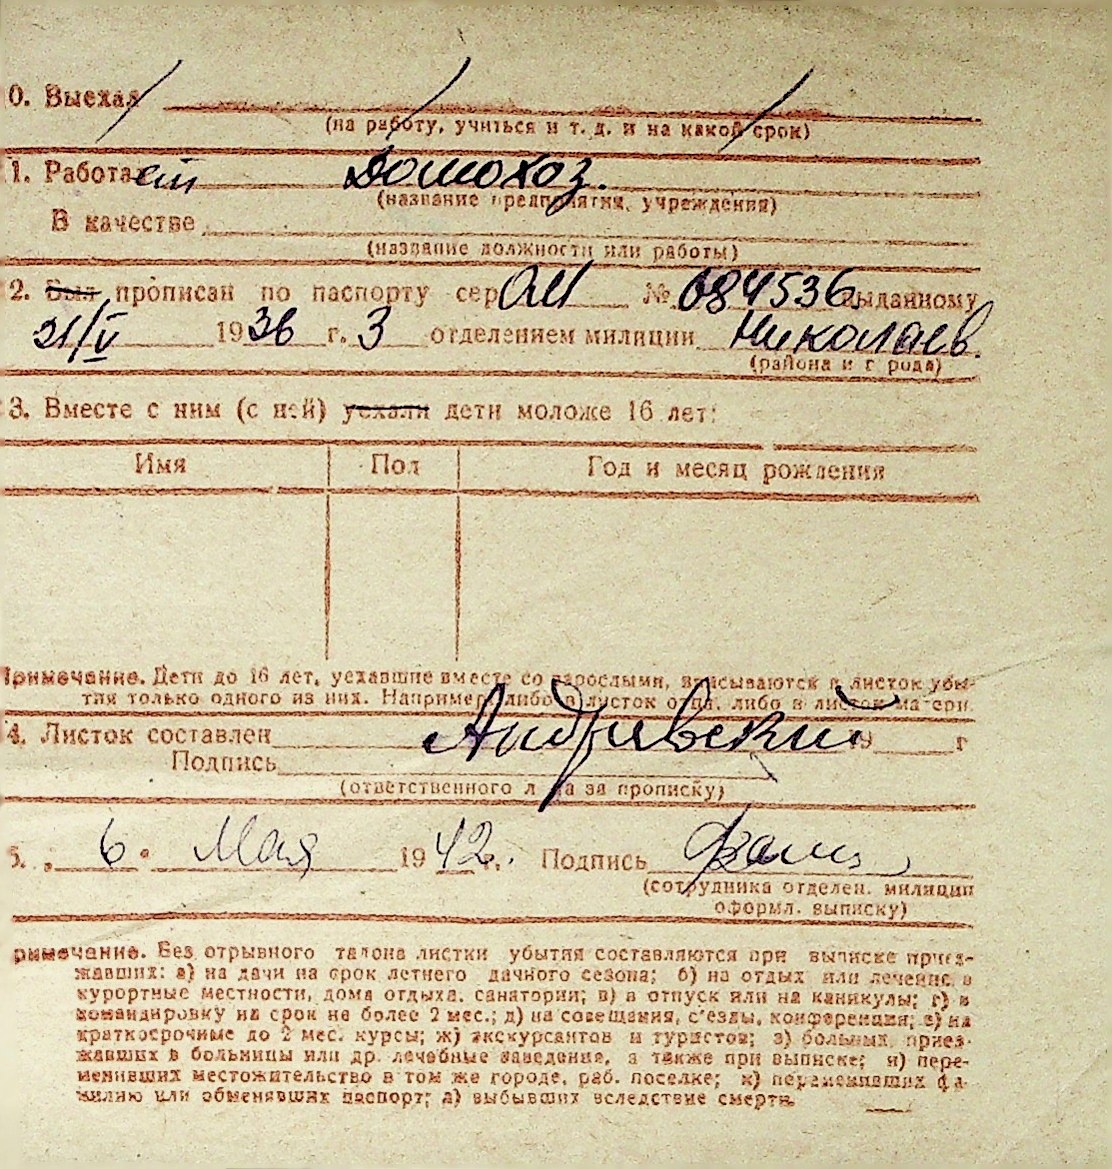 0. Выехал
(на работу, учиться и т. д. и на какой срок)
1. Работает Домохоз.
(название предприятия, учреждения)
В качестве
(название должности или работы)
2. Был прописан по паспорту сер. № 684536 выданному
21/V 1936 г. 3 отделением милиции Николаев.
(района и г рода)
3. Вместе с ним (с ней) уехали дети моложе 16 лет:
Имя Пол Год и месяц рождения
Примечание. Дети до 16 лет, уехавшие вместе со взрослыми, вписываются в листок убы-
тия только одного из них. Например, либо в листок отца, либо в листок матери.
4. Листок составлен 19 г
Подпись Андриевский
(ответственного л ца за прописку)
5. „ 6 " Мая 1942 г. Подпись
(сотрудника отделен. милиции
оформл. выписку)
римечание. Без отрывного талона листки убытия составляются при выписке приез-
жавших: а) на дачи на срок летнего дачного сезона; б) на отдых или лечение в
курортные местности, дома отдыха, санатории; в) в отпуск или на каникулы; г) в
командировку на срок не более 2 мес.; д) на совещания, с'езды, конференции; е) на
краткосрочные до 2 мес. курсы; ж) экскурсантов и туристов; з) больных, приез-
жавших в больницы или др. лечебные заведения, а также при выписке; и) пере-
менивших местожительство в том же городе, раб. поселке; к) переменивших фа-
милию или обменявших паспорт; л) выбывших вследствие смерти.